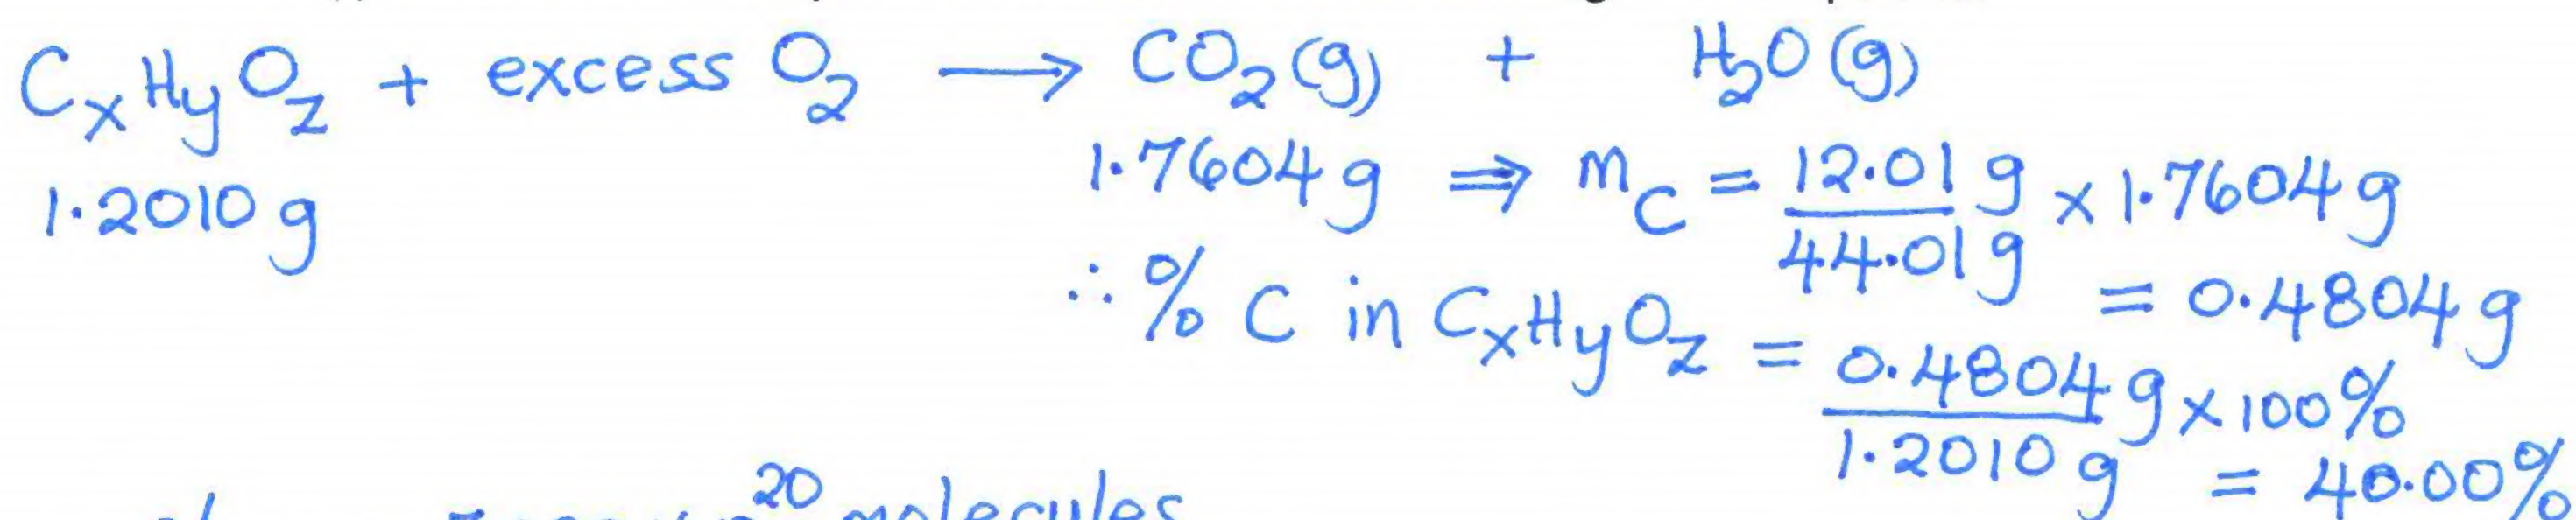 CxHyOz + excess O2 ⟶ CO2(g) + H2O(g)
1.2010 g
1.7604 g ⇒ mC = 12.01 g / 44.01 g × 1.7604 g
= 0.4804 g
∴ % C in CxHyOz = 0.4804 g / 1.2010 g × 100%
= 40.00%
20 molecules